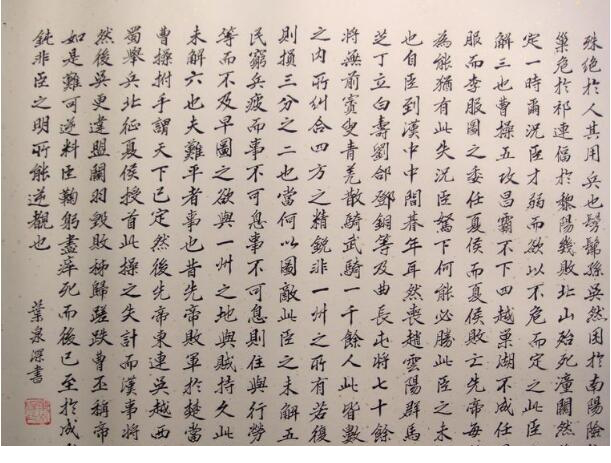 殊絶於人其用兵也髣髴孫吳然困於南陽險
巢危於祁連偪於黎陽幾敗北山殆死潼關然
定一時爾況臣才弱而欲以不危而定之此臣
解三也曹操五攻昌霸不下四越巢湖不成任
服而李服圖之委任夏侯而夏侯敗亡先帝每
為能猶有此失況臣駑下何能必勝此臣之未
也自臣到漢中中間朞年耳然喪趙雲陽群馬
芝丁立白壽劉郃鄧銅等及曲長屯將七十餘
將無前賨叟青羌散騎武騎一千餘人此皆數
之內所糾合四方之精銳非一州之所有若後
則損三分之二也當何以圖敵此臣之未解五
民窮兵疲而事不可息事不可息則住與行勞
等而不及早圖之欲與一州之地與賊持久此
未解六也夫難平者事也昔先帝敗軍於楚當
曹操拊手謂天下已定然後先帝東連吳越西
蜀舉兵北征夏侯授首此操之失計而漢事將
然後吳更違盟關羽毀敗秭歸蹉跌曹丕稱帝
如是難可逆料臣鞠躬盡瘁死而後已至於成
鈍非臣之明所能逆覩也
葉泉深書